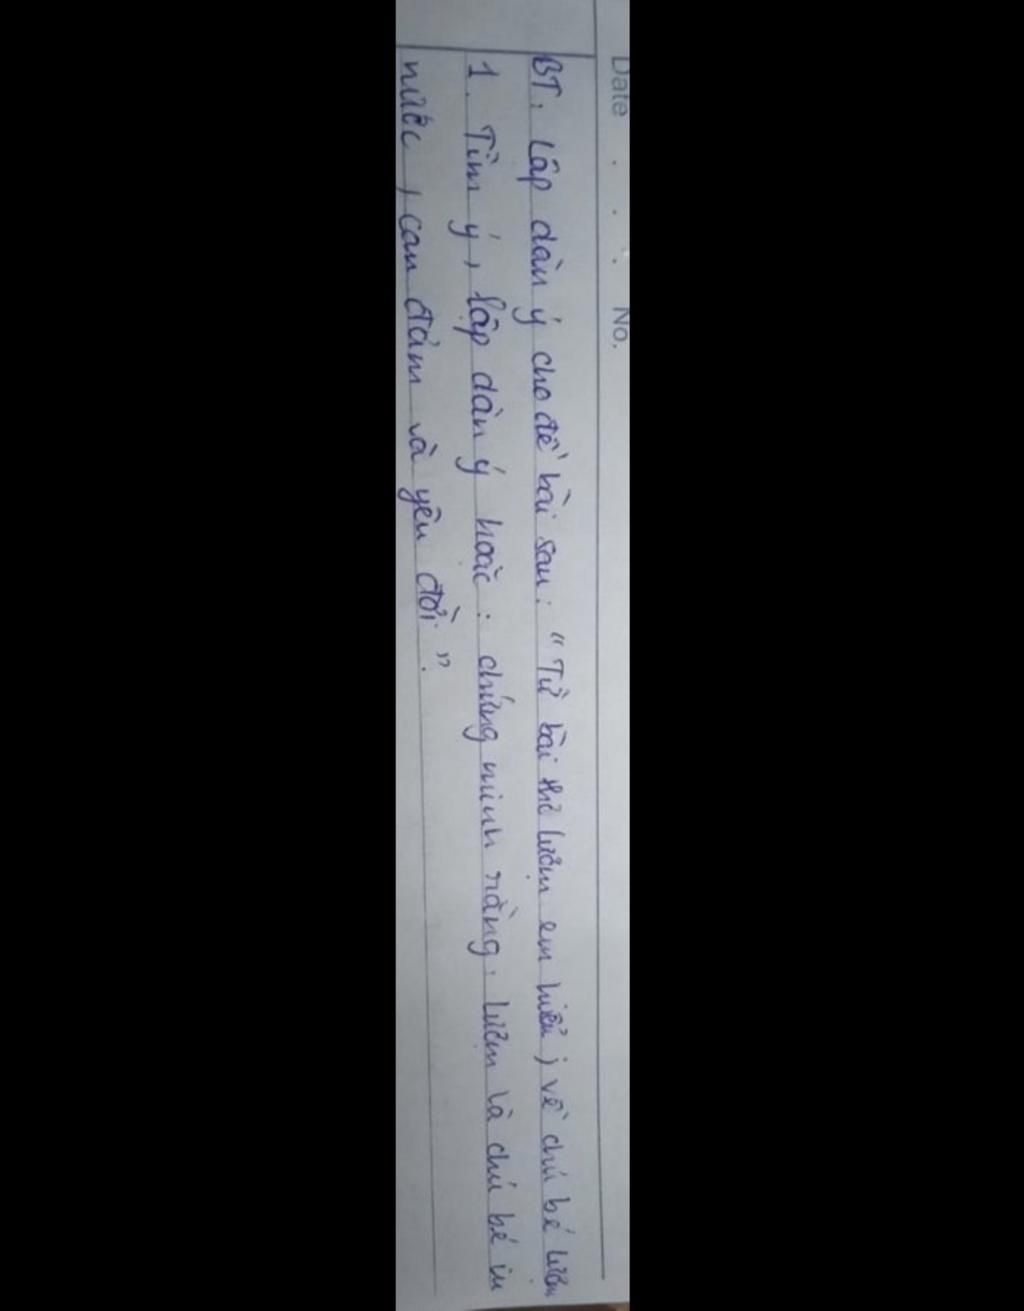 Date . . . No.
BT: Lập dàn ý cho đề bài sau: "Từ bài thơ Lượm em hiểu j về chú bé Lượm
1. Tìm ý, lập dàn ý hoặc: chứng minh rằng: Lượm là chú bé iu
nước, can đảm và yêu đời".